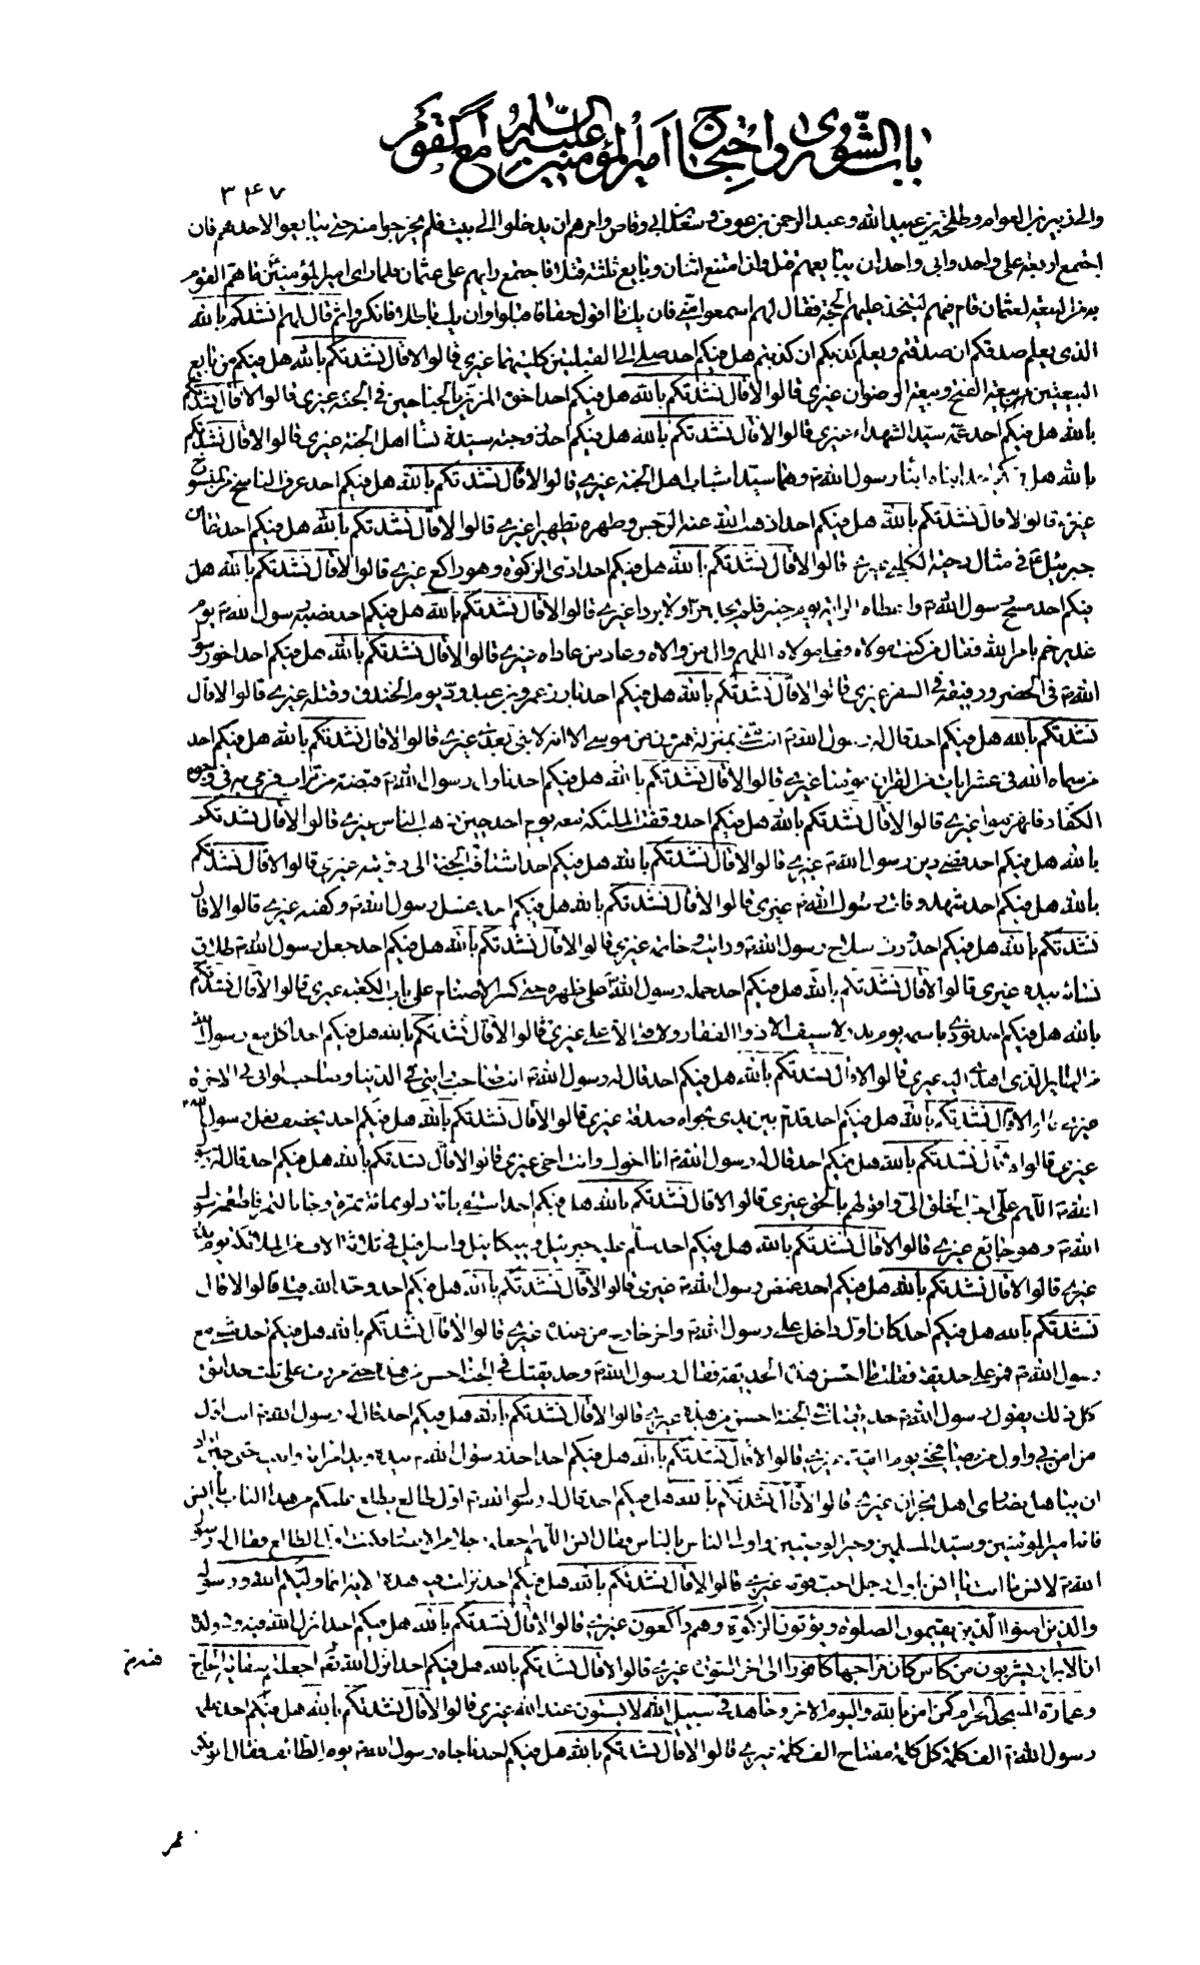 باب الشورى واحتجاج امير المؤمنين عليه السلام مع القوم
٣٤٧
والى زبير بن العوام وطلحة بن عبيد الله وعبد الرحمن بن عوف وسعد بن ابى وقاص وامرهم ان يدخلوا الى بيت فلم يخرجوا منه حتى يبايعوا لاحدهم فان
اجتمع اربعة على واحد وابى واحد ان يبايعهم قتل وان امتنع اثنان وبايع ثلثة قتلا فاجتمع رايهم على عثمان فلما راى امير المؤمنين ما هم القوم
به من البيعة لعثمان قام فيهم ليتخذ عليهم الحجة فقال لهم اسمعوا منى فان يك ما اقول حقا فاقبلوا وان يك باطلا فانكروا ثم قال لهم انشدكم بالله
الذى يعلم صدقكم ان صدقتم ويعلم كذبكم ان كذبتم هل فيكم احد صلى الى القبلتين كلتيهما غيرى قالوا لا قال نشدتكم بالله هل فيكم من بايع
البيعتين بيعة الفتح وبيعة الرضوان غيرى قالوا لا قال نشدتكم بالله هل فيكم احد اخوه المزين بالجناحين فى الجنة غيرى قالوا لا قال نشدتكم
بالله هل فيكم احد عمه سيد الشهداء غيرى قالوا لا قال نشدتكم بالله هل فيكم احد زوجته سيدة نساء اهل الجنة غيرى قالوا لا قال نشدتكم
بالله هل فيكم احد ابناه ابنا رسول الله ص وهما سيدا شباب اهل الجنة غيرى قالوا لا قال نشدتكم بالله هل فيكم احد عرف الناسخ من المنسوخ
غيرى قالوا لا قال نشدتكم بالله هل فيكم احد اذهب الله عنه الرجس وطهره تطهيرا غيرى قالوا لا قال نشدتكم بالله هل فيكم احد عاين
جبرئيل ع فى مثال دحية الكلبى غيرى قالوا لا قال نشدتكم بالله هل فيكم احد ادى الزكوة وهو راكع غيرى قالوا لا قال نشدتكم بالله هل
فيكم احد مسح رسول الله ص واعطاه الراية يوم خيبر فلم يجد حرا ولا بردا غيرى قالوا لا قال نشدتكم بالله هل فيكم احد نصبه رسول الله ص يوم
غدير خم بامر الله فقال من كنت مولاه فعلى مولاه اللهم وال من والاه وعاد من عاداه غيرى قالوا لا قال نشدتكم بالله هل فيكم احد اخو رسول
الله ص فى الحضر ورفيقه فى السفر غيرى قالوا لا قال نشدتكم بالله هل فيكم احد بارز عمرو بن عبد ود يوم الخندق وقتله غيرى قالوا لا قال
نشدتكم بالله هل فيكم احد قال له رسول الله ص انت منى بمنزلة هرون من موسى الا انه لا نبى بعدى غيرى قالوا لا قال نشدتكم بالله هل فيكم احد
من سماه الله فى عشر ايات من القران مؤمنا غيرى قالوا لا قال نشدتكم بالله هل فيكم احد ناول رسول الله ص قبضة من تراب فرمى به فى وجوه
الكفار فانهزموا غيرى قالوا لا قال نشدتكم بالله هل فيكم احد وقفت الملئكة معه يوم احد حين ذهب الناس غيرى قالوا لا قال نشدتكم
بالله هل فيكم احد قضى دين رسول الله ص غيرى قالوا لا قال نشدتكم بالله هل فيكم احد اشتاقت الجنة الى رؤيته غيرى قالوا لا قال نشدتكم
بالله هل فيكم احد شهد وفات رسول الله ص غيرى قالوا لا قال نشدتكم بالله هل فيكم احد غسل رسول الله ص وكفنه غيرى قالوا لا قال
نشدتكم بالله هل فيكم احد ورث سلاح رسول الله ص ورايته وخاتمه غيرى قالوا لا قال نشدتكم بالله هل فيكم احد جعل رسول الله ص طلاق
نسائه بيده غيرى قالوا لا قال نشدتكم بالله هل فيكم احد حمله رسول الله ص على ظهره حتى كسر الاصنام على باب الكعبة غيرى قالوا لا قال نشدتكم
بالله هل فيكم احد نودى باسمه يوم بدر لا سيف الا ذو الفقار ولا فتى الا على غيرى قالوا لا قال نشدتكم بالله هل فيكم احد اكل مع رسول الله
من الطاير الذى اهدى اليه غيرى قالوا لا قال نشدتكم بالله هل فيكم احد قال له رسول الله ص انت صاحب رايتى فى الدنيا وصاحب لوائى فى الاخرة
غيرى قالوا لا قال نشدتكم بالله هل فيكم احد قدم بين يدى نجواه صدقة غيرى قالوا لا قال نشدتكم بالله هل فيكم احد يخصف نعل رسول الله
غيرى قالوا لا قال نشدتكم بالله هل فيكم احد قال له رسول الله ص انا اخوك وانت اخى غيرى قالوا لا قال نشدتكم بالله هل فيكم احد قال له رسول
الله ص اللهم على احب الخلق الى واقولهم بالحق غيرى قالوا لا قال نشدتكم بالله هل فيكم احد استقى مائة دلو بمائة تمرة وجاء بالتمر فاطعمه رسول
الله ص وهو جايع غيرى قالوا لا قال نشدتكم بالله هل فيكم احد سلم عليه جبرئيل وميكائيل واسرافيل فى ثلاثة الاف من الملائكة يوم بدر
غيرى قالوا لا قال نشدتكم بالله هل فيكم احد غمض رسول الله ص غيرى قالوا لا قال نشدتكم بالله هل فيكم احد وحد الله قبلى قالوا لا قال
نشدتكم بالله هل فيكم احد كان اول داخل على رسول الله ص واخر خارج من عنده غيرى قالوا لا قال نشدتكم بالله هل فيكم احد مشى مع
رسول الله ص فمر على حديقة فقلت ما احسن هذه الحديقة فقال رسول الله ص وحديقتك فى الجنة احسن من هذه حتى مررت على ثلث حدائق
كل ذلك يقول رسول الله ص حديقتك فى الجنة احسن من هذه غيرى قالوا لا قال نشدتكم بالله هل فيكم احد قال له رسول الله ص انت اول
من امن بى واول من يصافحنى يوم القيمة غيرى قالوا لا قال نشدتكم بالله هل فيكم احد اخذ رسول الله ص بيده ويد امراته وابنيه حين اراد
ان يباهل نصارى اهل نجران غيرى قالوا لا قال نشدتكم بالله هل فيكم احد قال له رسول الله ص اول طالع يطلع عليكم من هذا الباب يا انس
فانه امير المؤمنين وسيد المسلمين وخير الوصيين واولى الناس بالناس فقال انس اللهم اجعله رجلا من الانصار فكنت انا الطالع فقال رسول
الله ص لانس ما انت يا انس اول رجل احب قومه غيرى قالوا لا قال نشدتكم بالله هل فيكم احد نزلت فيه هذه الاية انما وليكم الله ورسوله
والذين امنوا الذين يقيمون الصلوة ويؤتون الزكوة وهم راكعون غيرى قالوا لا قال نشدتكم بالله هل فيكم احد انزل الله فيه وفى ولده
ان الابرار يشربون من كاس كان مزاجها كافورا الى اخر السورة غيرى قالوا لا قال نشدتكم بالله هل فيكم احد انزل الله فيه اجعلتم سقاية الحاج
وعمارة المسجد الحرام كمن امن بالله واليوم الاخر وجاهد فى سبيل الله لا يستون عند الله غيرى قالوا لا قال نشدتكم بالله هل فيكم احد علمه
رسول الله ص الف كلمة كل كلمة مفتاح الف كلمة غيرى قالوا لا قال نشدتكم بالله هل فيكم احد ناجاه رسول الله ص يوم الطائف فقال ابو بكر